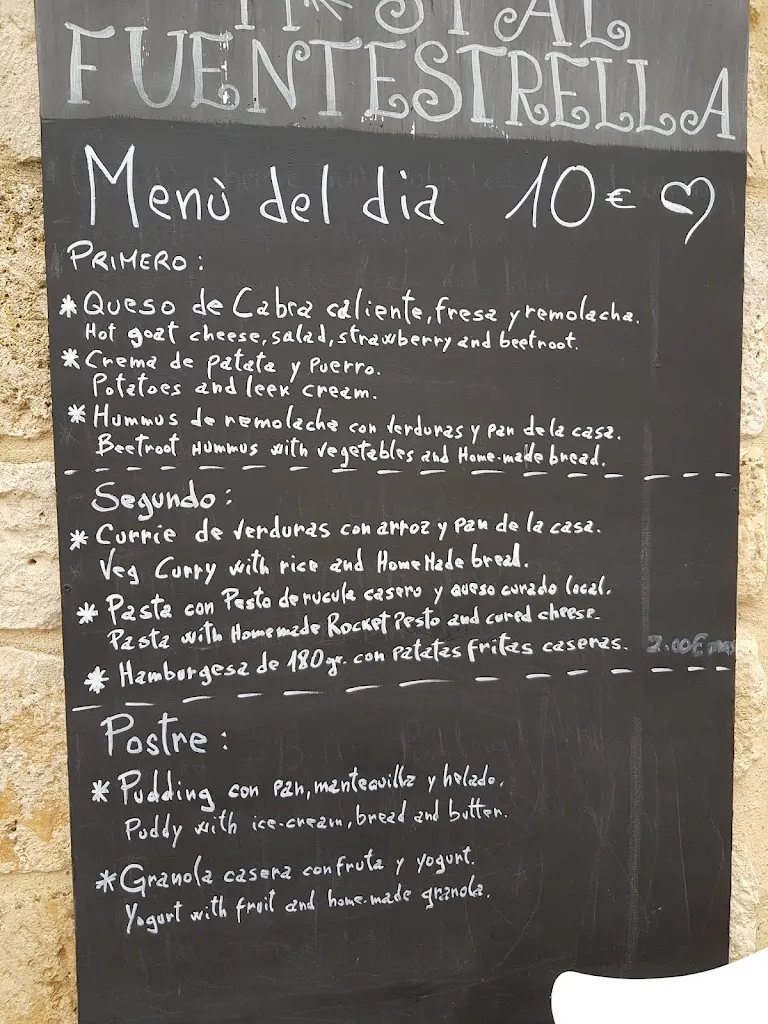 HOSTAL
FUENTESTRELLA
Menù del dia 10€
PRIMERO:
* Queso de Cabra caliente, fresa y remolacha.
Hot goat cheese, salad, strawberry and beetroot.
* Crema de patata y Puerro.
Potatoes and leek cream.
* Hummus de remolacha con verduras y pan de la casa.
Beetroot Hummus with vegetables and Home-made bread.
Segundo:
* Currie de verduras con arroz y pan de la casa.
Veg Curry with rice and HomeMade bread.
* Pasta con Pesto de rucula casero y queso curado local.
Pasta with Homemade Rocket Pesto and cured cheese.
* Hamburgesa de 180gr. con patatas fritas caseras. 2.00€ mas
Postre:
* Pudding con pan, mantequilla y helado.
Puddy with ice-cream, bread and butter.
* Granola casera con fruta y yogurt.
Yogurt with fruit and home-made granola.